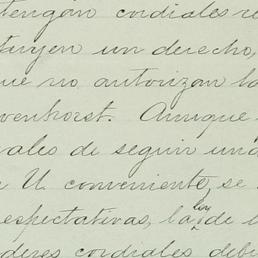 tengan cordiales re
tuyen un derecho,
que no autorizan la
venhorst. Aunque
vales de seguir una
a U. conveniente, se
espectativas, la ley de
deres cordiales debi